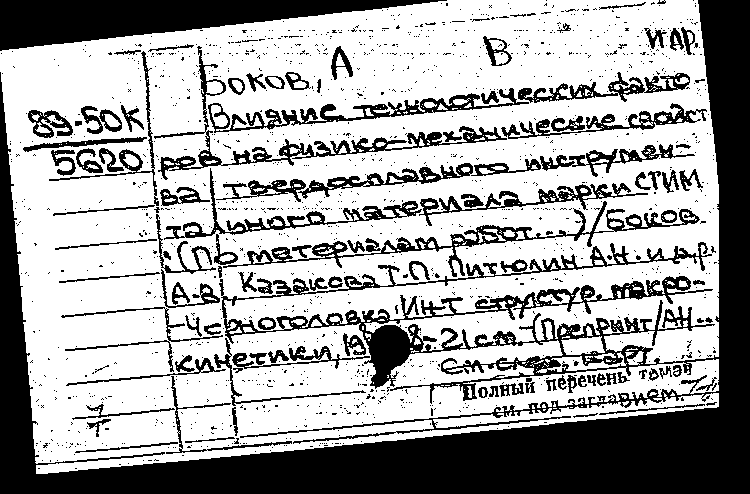 Боков, А В и др.
89-50К
5620
Влияние технологических факто-
ров на физико-механические свойст
ва твердосплавного инструмен-
тального материала марки СТИМ
:(По материалам работ...)/Боков
А.В., Казакова Т.П., Питюлин А.Н. и др.
-Черноголовка: Ин-т структур. макро-
кинетики, 19 8.- 21 см. - (Препринт/АН...
см. след. карт.
Полный перечень томов
см. под заглавием.